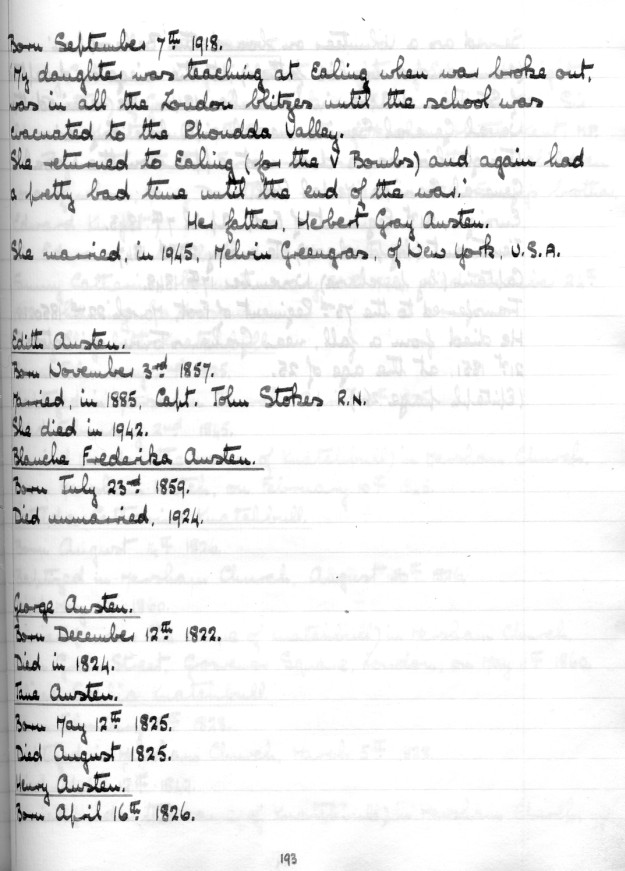 Born September 7th 1918.
'My daughter was teaching at Ealing when war broke out,
was in all the London blitzes until the school was
evacuated to the Rhoudda Valley.
She returned to Ealing (for the V Bombs) and again had
a pretty bad time until the end of the war.'
Her father, Herbert Gray Austen.
She married, in 1945, Melvin Greengras, of New York, U.S.A.
Edith Austen.
Born November 3rd 1857.
Married, in 1885, Capt. John Stokes R.N.
She died in 1942.
Blanche Frederika Austen.
Born July 23rd 1859.
Died unmarried, 1924.
George Austen.
Born December 12th 1822.
Died in 1824.
Jane Austen.
Born May 12th 1825.
Died August 1825.
Henry Austen.
Born April 16th 1826.
193